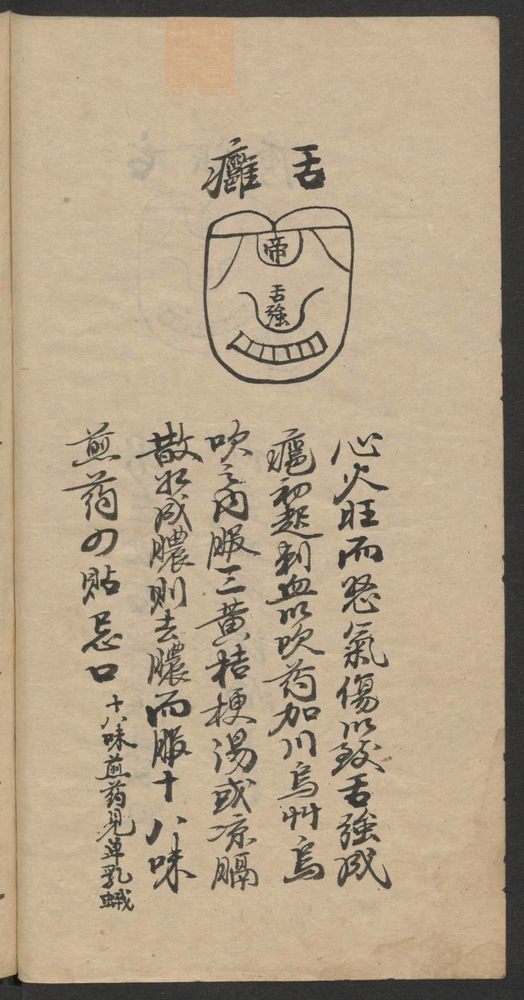 舌癰
帝
舌強
心火旺而怒氣傷以致舌強成
癰初起刺血以吹药加川烏艸烏
吹之内服三黄桔梗湯或凉膈
散若成膿則去膿而服十八味
煎药四貼忌口十八味煎药見单乳蛾